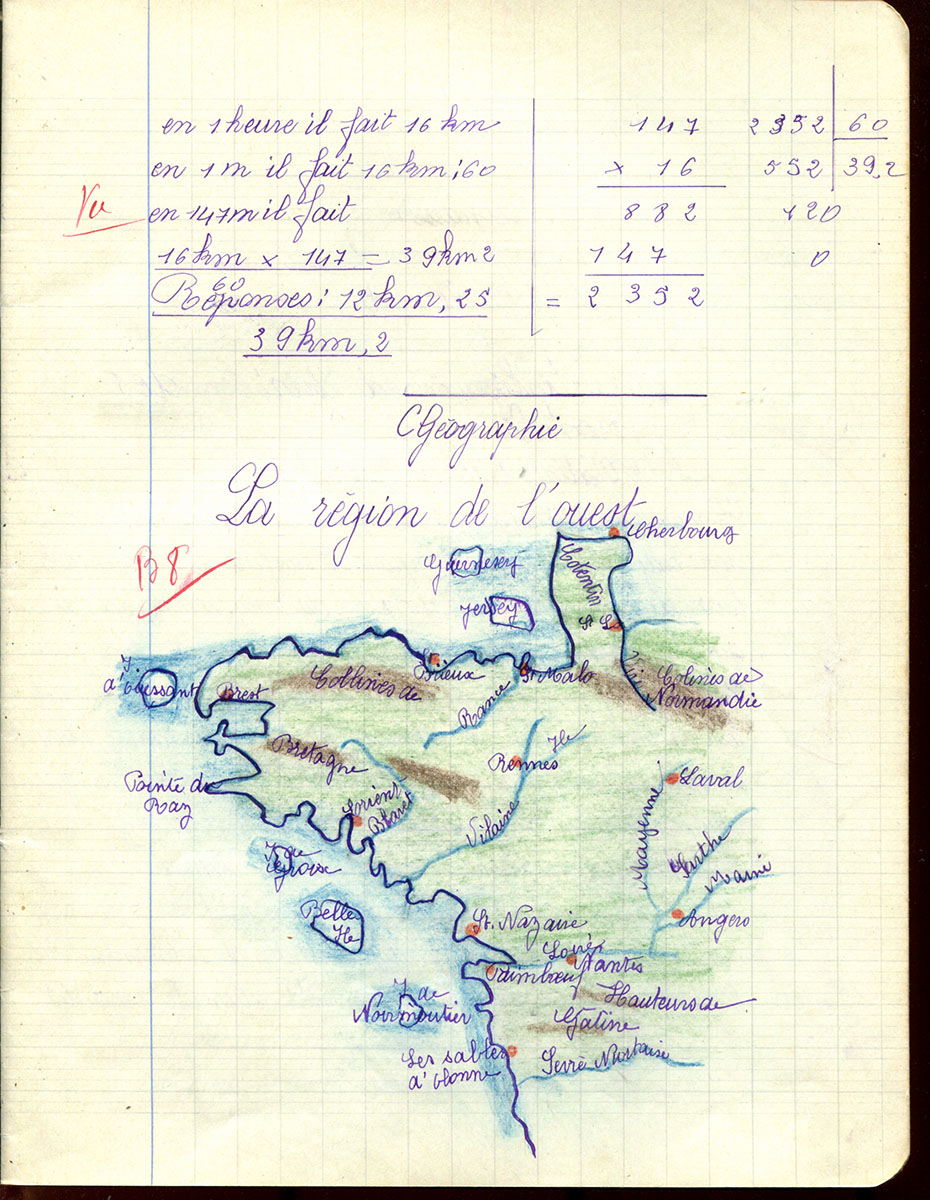 en 1 heure il fait 16 km
en 1 m il fait 16 km : 60
Vu
en 147 m il fait
16 km × 147 = 39 km 2
60
Réponses : 12 km, 25
39 km, 2
147
× 16
882
147
= 2352
2352 60
552 39,2
120
0
Géographie
La région de l'ouest
B 8
Cherbourg
Guernesey
Cotentin
Jersey
St Lo
Vire
I
d'Ouessant
Brest
Collines de
Brieux
St Malo
Colinès de
Normandie
Rance
Bretagne
Ile
Rennes
Laval
Pointe du
Raz
Lorient
Blavet
Vilaine
Mayenne
Sarthe
Maine
I de
Groise
Belle
Ile
St. Nazaire
Angers
Loire
Nantes
Paimbœuf
I de
Noirmoutier
Hauteurs de
Gâtine
Les sables
d'olonne
Sèvre Niortaise